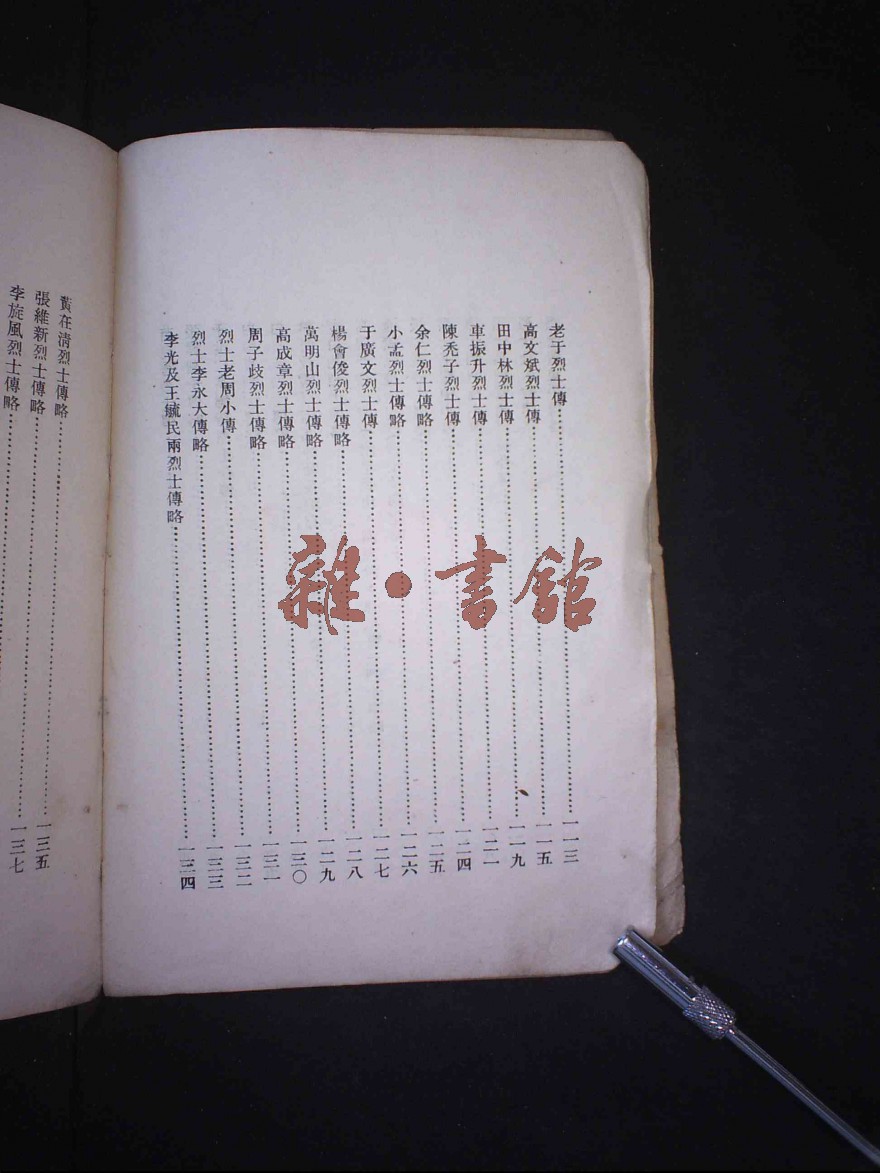 老于烈士傳……一一三
高文斌烈士傳……一一五
田中林烈士傳……一一九
車振升烈士傳……一二一
陳禿子烈士傳……一二四
余仁烈士傳略……一二五
小孟烈士傳略……一二六
于廣文烈士傳……一二七
楊會俊烈士傳略……一二八
萬明山烈士傳略……一二九
高成章烈士傳略……一三〇
周子歧烈士傳略……一三一
烈士老周小傳……一三二
烈士李永大傳略……一三三
李光及王毓民兩烈士傳略……一三四
黃在清烈士傳略……一三五
張維新烈士傳略……一三七
李旋風烈士傳略……
雜·書館